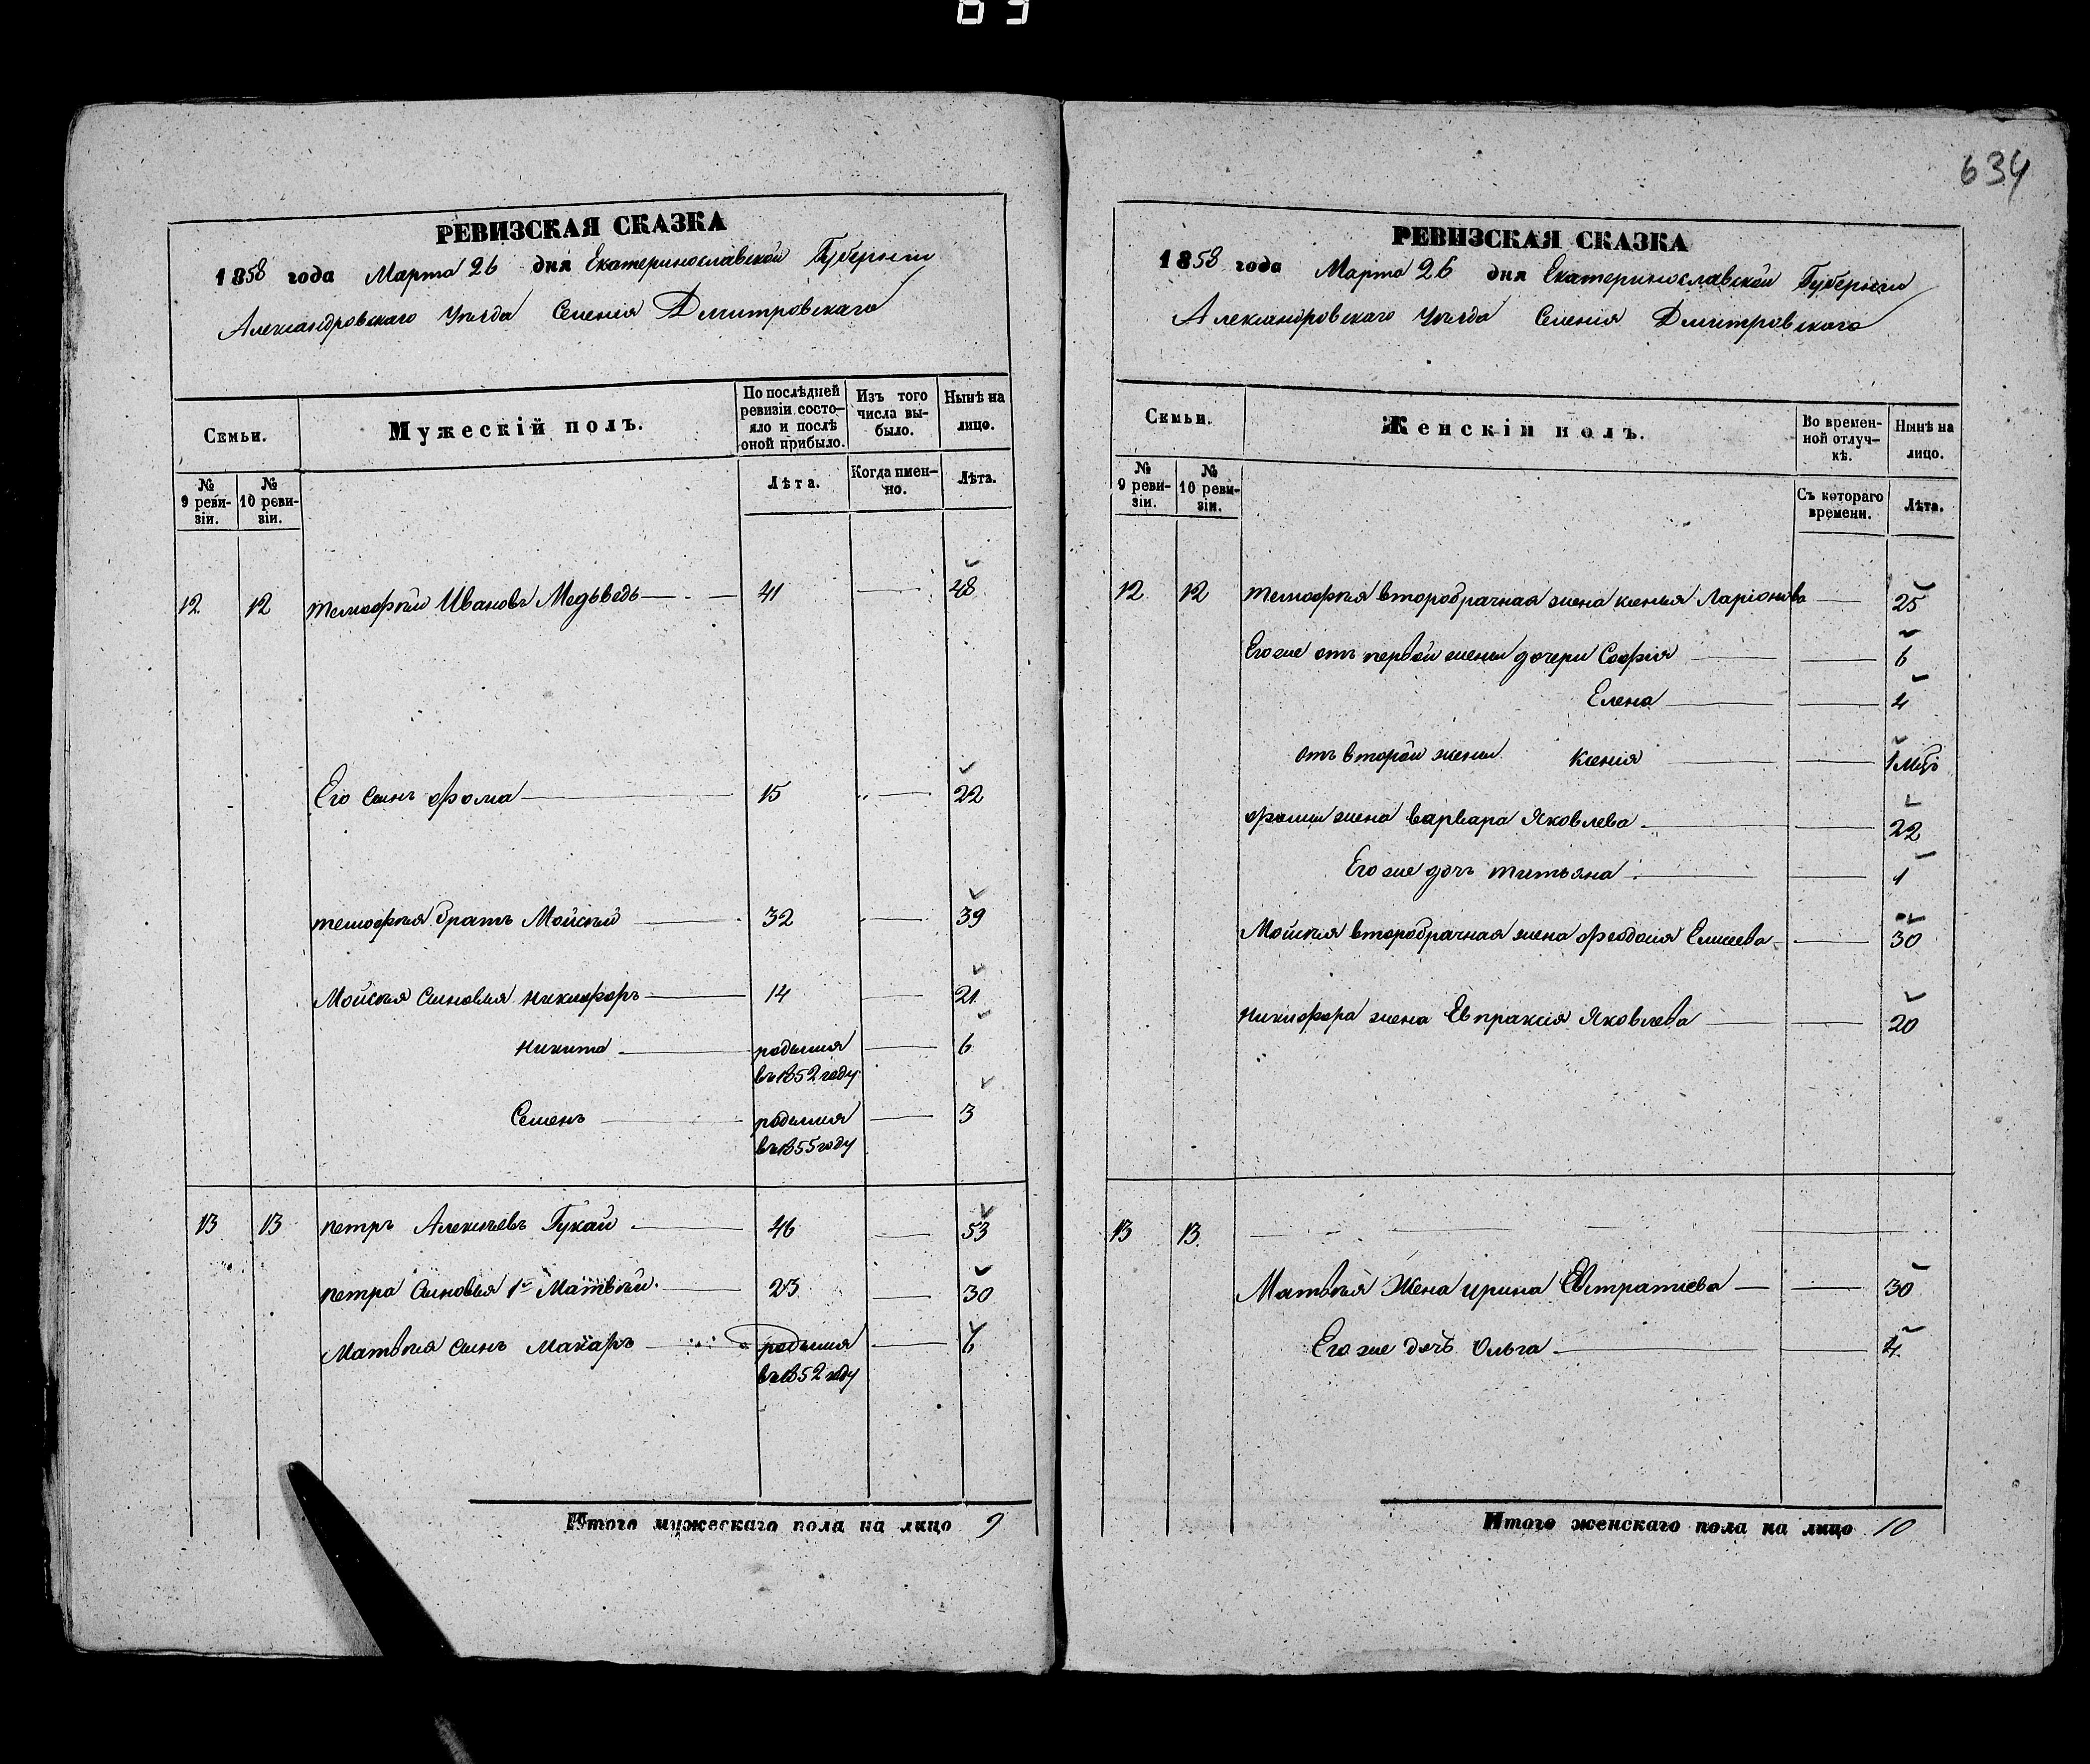 634
РЕВИЗСКАЯ СКАЗКА
1858 года Марта 26 дня Екатеринославской Губернии
Александровскаго Уѣзда Селенія Дмитровскаго
Семьи.
Мужескій полъ.
По послѣдней ревизіи состо-
яло и послѣ
оной прибыло.
Изъ того
числа вы-
было.
Нынѣ на
лицо.
№
9 реви-
зіи.
№
10 реви-
зіи.
Лѣта.
Когда имен-
но.
Лѣта.
12 12 Тимофѣй Ивановъ Медьведь 41 48
Его сынъ Фома 15 22
Тимофѣя братъ Мойсѣй 32 39
Мойсѣя сыновья Никифоръ 14 21
Никита родился 6
въ 1852 году
Семенъ родился 3
въ 1855 году
13 13 Петръ Алексѣевъ Гукай 46 53
Петра сыновья 1й Матвѣй 23 30
Матвѣя сынъ Макаръ родился 6
въ 1852 году
Итого мужескаго пола на лицо 9
РЕВИЗСКАЯ СКАЗКА
1858 года Марта 26 дня Екатеринославской Губернии
Александровскаго Уѣзда Селенія Дмитровскаго
Семьи.
Женскій полъ.
Во времен-
ной отлуч-
кѣ.
Нынѣ на
лицо.
№
9 реви-
зіи.
№
10 реви-
зіи.
Съ котораго
времени.
Лѣта.
12 12 Тимофѣя второбрачная жена Ксенья Ларіонова 25
Его же отъ первой жены дочери Софія 6
Елена 4
отъ второй жены Ксенія 1 Мцъ
Фомы жена Варвара Яковлева 22
Его же дочь Татьяна 1
Мойсѣя второбрачная жена Феодосія Елисеева 30
Никифора жена Евпраксія Яковлева 20
13 13
Матвѣя Жена Ирина Евстратиева 30
Его же дочь Ольга 4
Итого женскаго пола на лицо 10